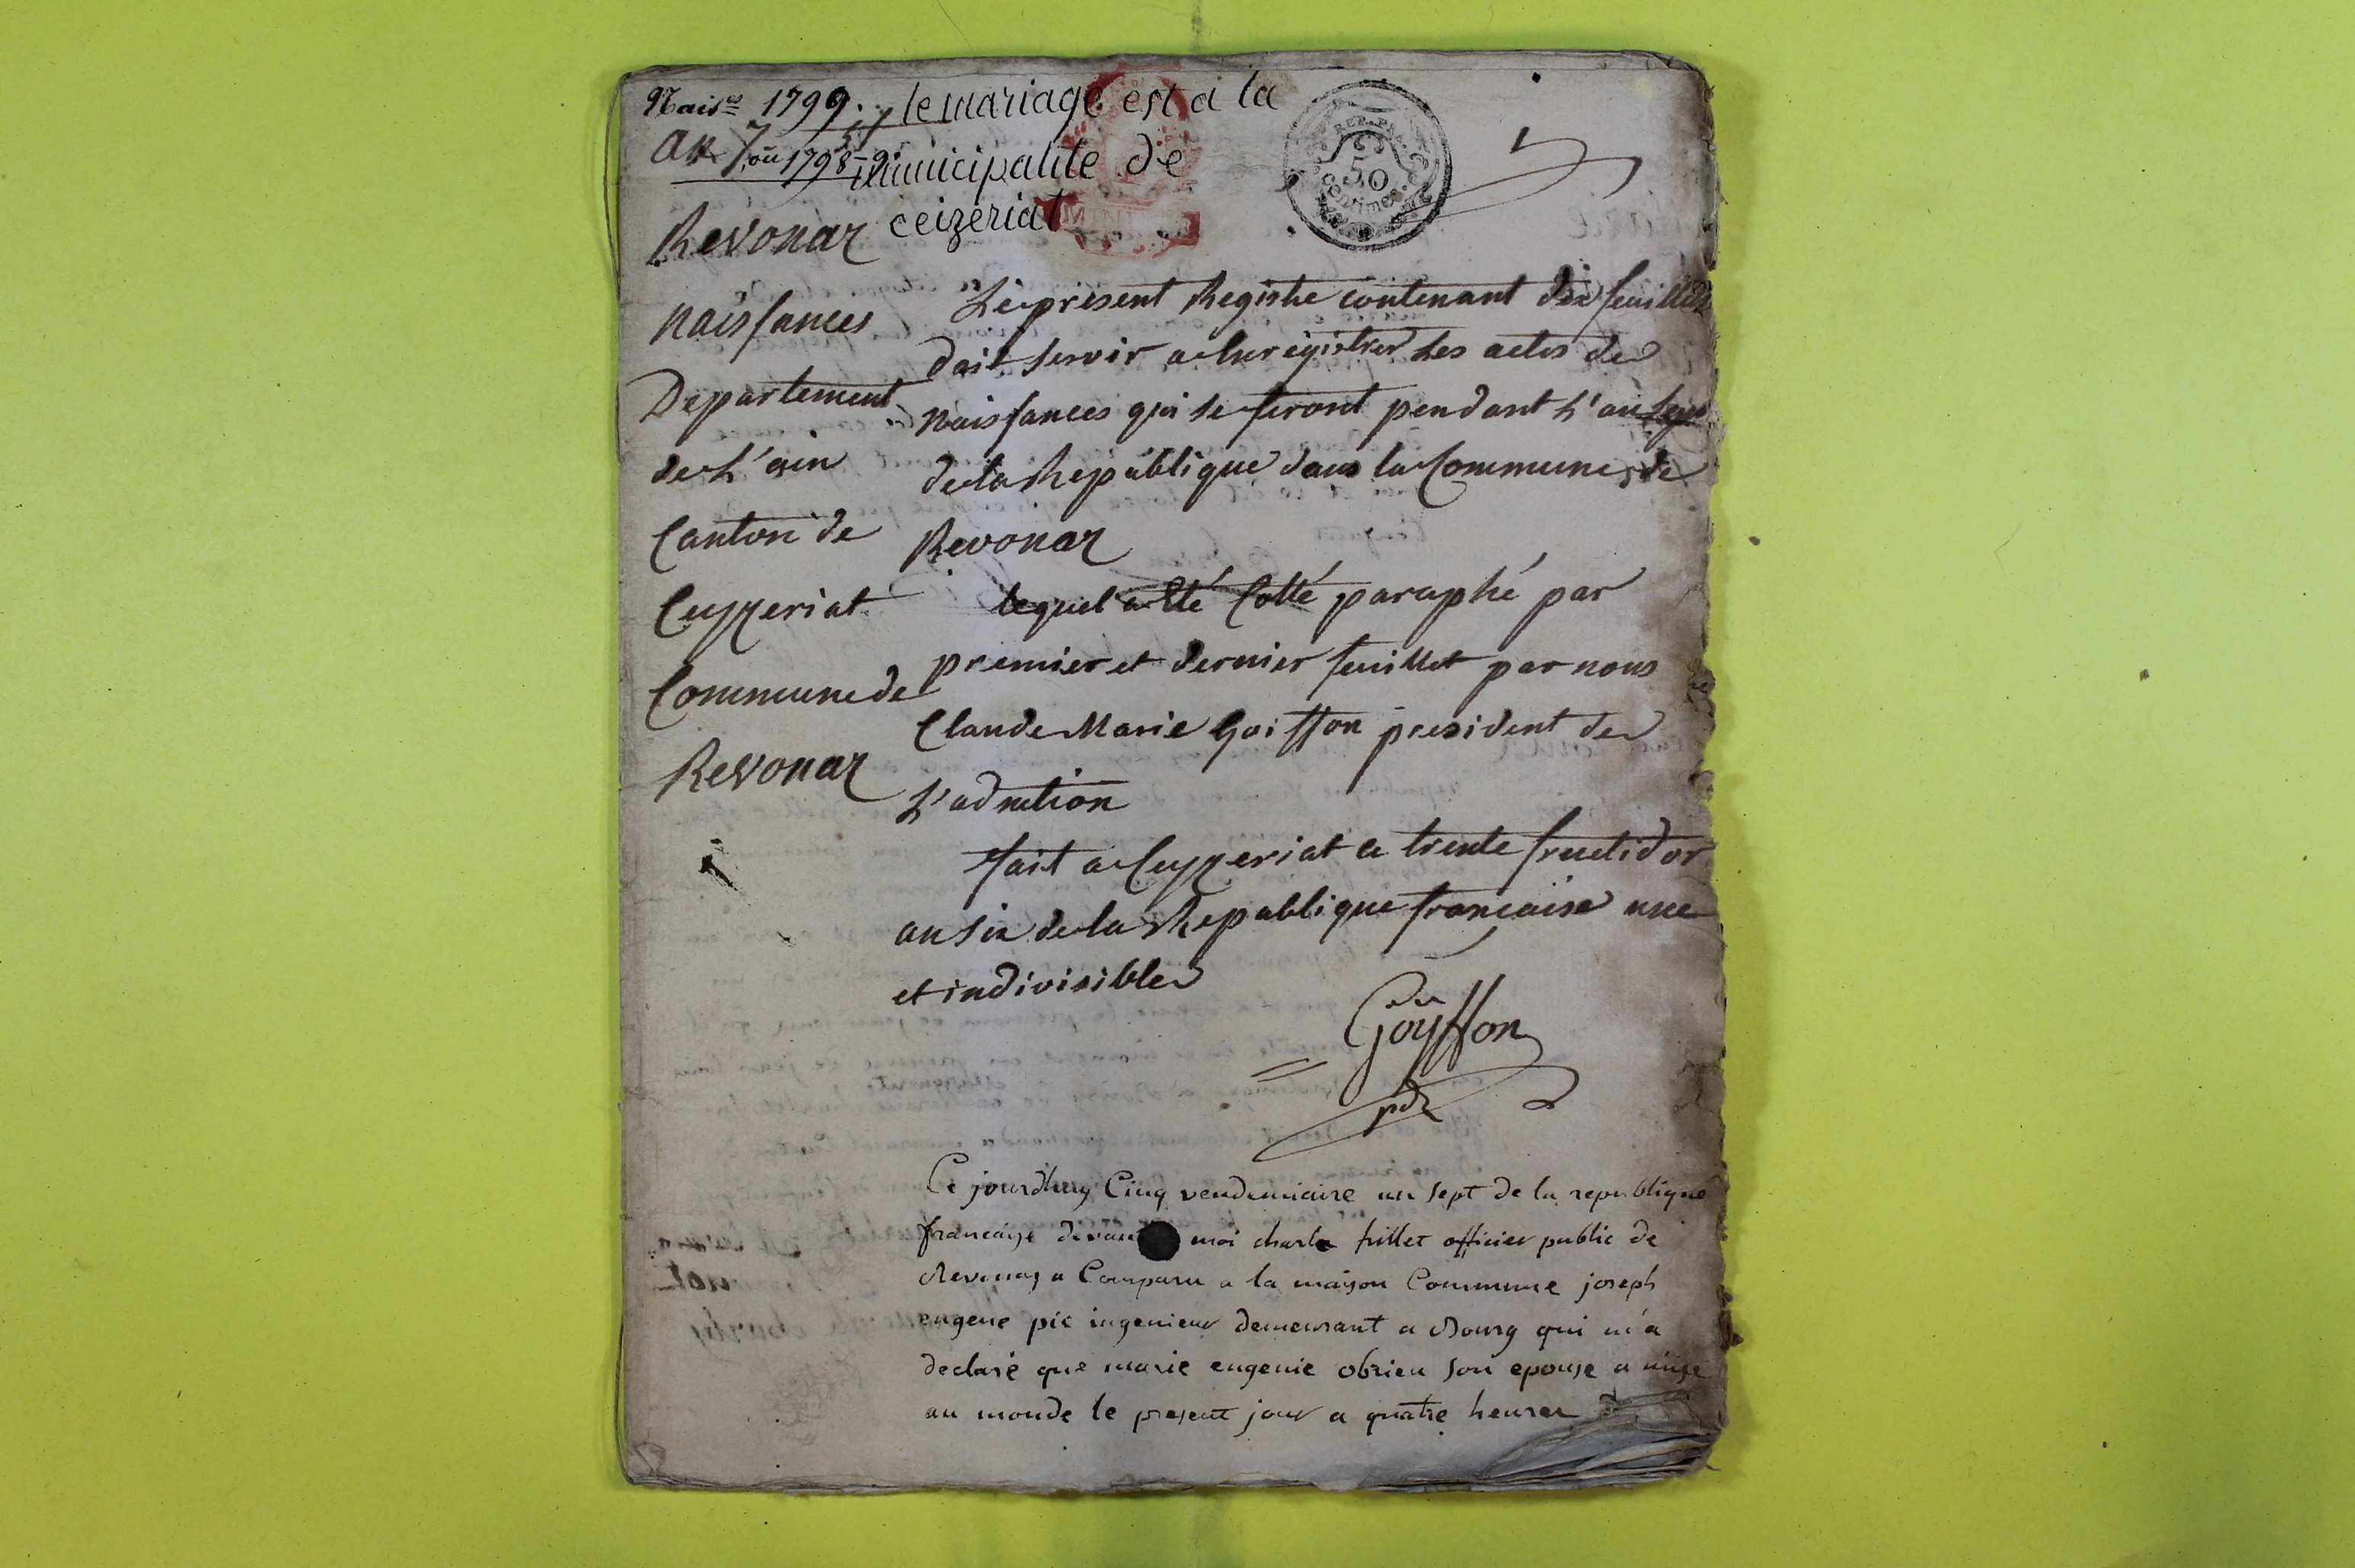 Naisces 1799. le mariage est a la
an 7 ou 1798-9. municipalité de
ceizeriat
REP. FRA.
50
centimes
Revonaz
Naissances
Departement
de L'ain
Canton de
Ceyzeriat
Commune de
Revonaz
Le present Registre contenant dix feuillets
doit servir a Enregistrer Les actes de
Naissances qui se feront pendant L'an sept
de la Republique dans la Commune de
Revonaz
lequel a Eté Cotté paraphé par
premier et dernier feuillet par nous
Claude Marie Goiffon president de
L'admtion
fait a Ceyzeriat ce trente fructidor
an six de la Republique francaise une
et indivisible
Goÿffon
pdt
Ce jourdhuy Cinq vendemiaire an sept de la republique
francaise devant moi charle fillet officier public de
Revonaz a Comparu a la maison Commune joseph
eugene pic ingenieur demeurant a Bourg qui m'a
declaré que marie eugenie obrien son epouse a mise
au monde le present jour a quatre heures